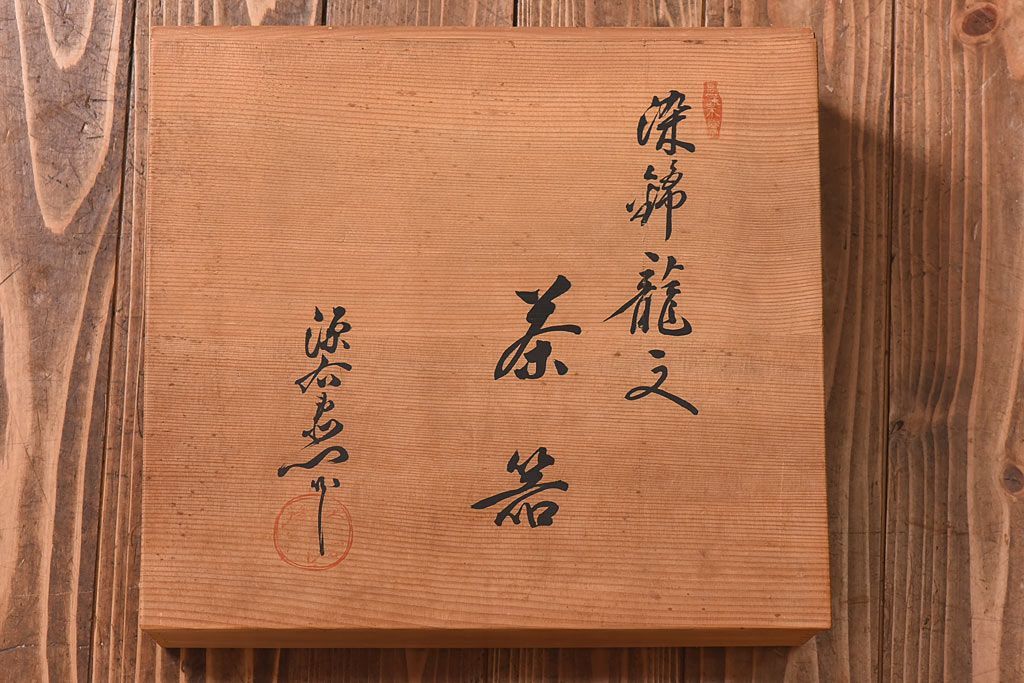 染錦龍文
茶器
源右衛門作